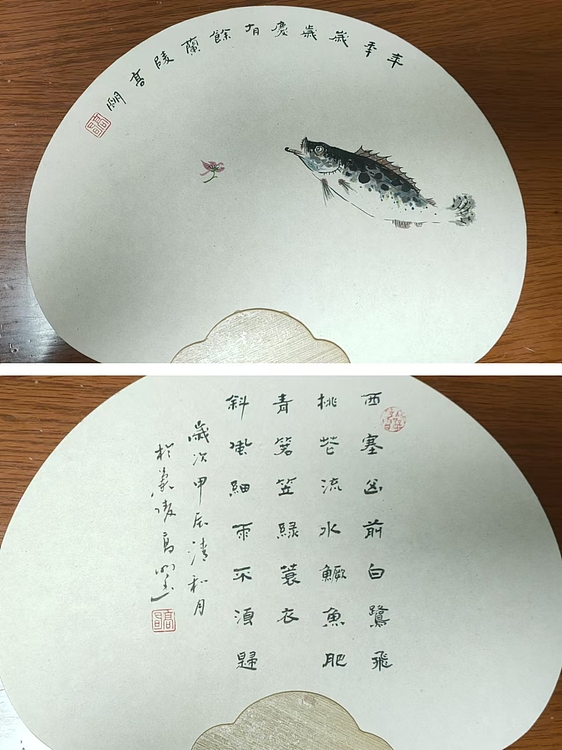 年秊歲歲慶有餘蘭陵高朙
西塞山前白鷺飛
桃花流水鱖魚肥
青箬笠緑蓑衣
斜風細雨不須歸
歲次甲辰清和月
於蘭陵高明